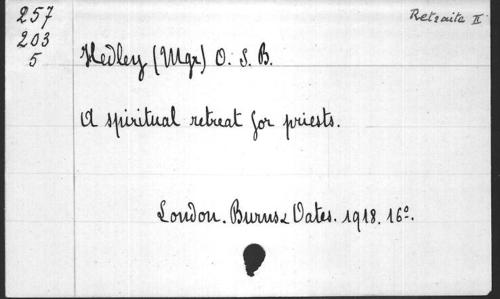 257
203
5
Retraite II
Hedley (Mgr) O. S. B.
A spiritual retreat for priests.
London. Burns & Oates. 1918. 16°.